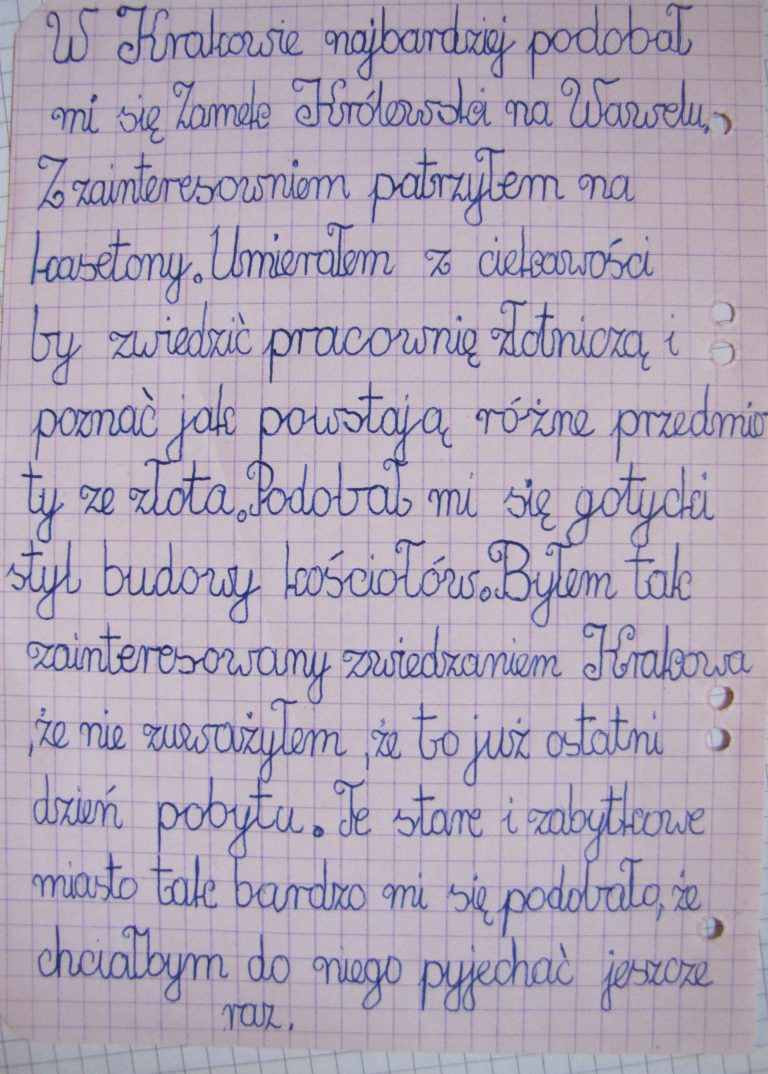 W Krakowie najbardziej podobał
mi się Zamek Królewski na Wawelu.
Z zainteresowniem patrzyłem na
kasetony. Umierałem z ciekawości
by zwiedzić pracownię złotniczą i
poznać jak powstają różne przedmio
ty ze złota. Podobał mi się gotycki
styl budowy kościołów. Byłem tak
zainteresowany zwiedzaniem Krakowa
,że nie zuważyłem ,że to już ostatni
dzień pobytu. Te stare i zabytkowe
miasto tak bardzo mi się podobało, że
chciałbym do niego pyjechać jeszcze
raz.